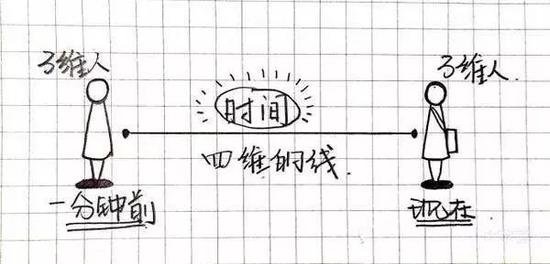 3维人
3维人.
时间
四维的线.
一分钟前
现在